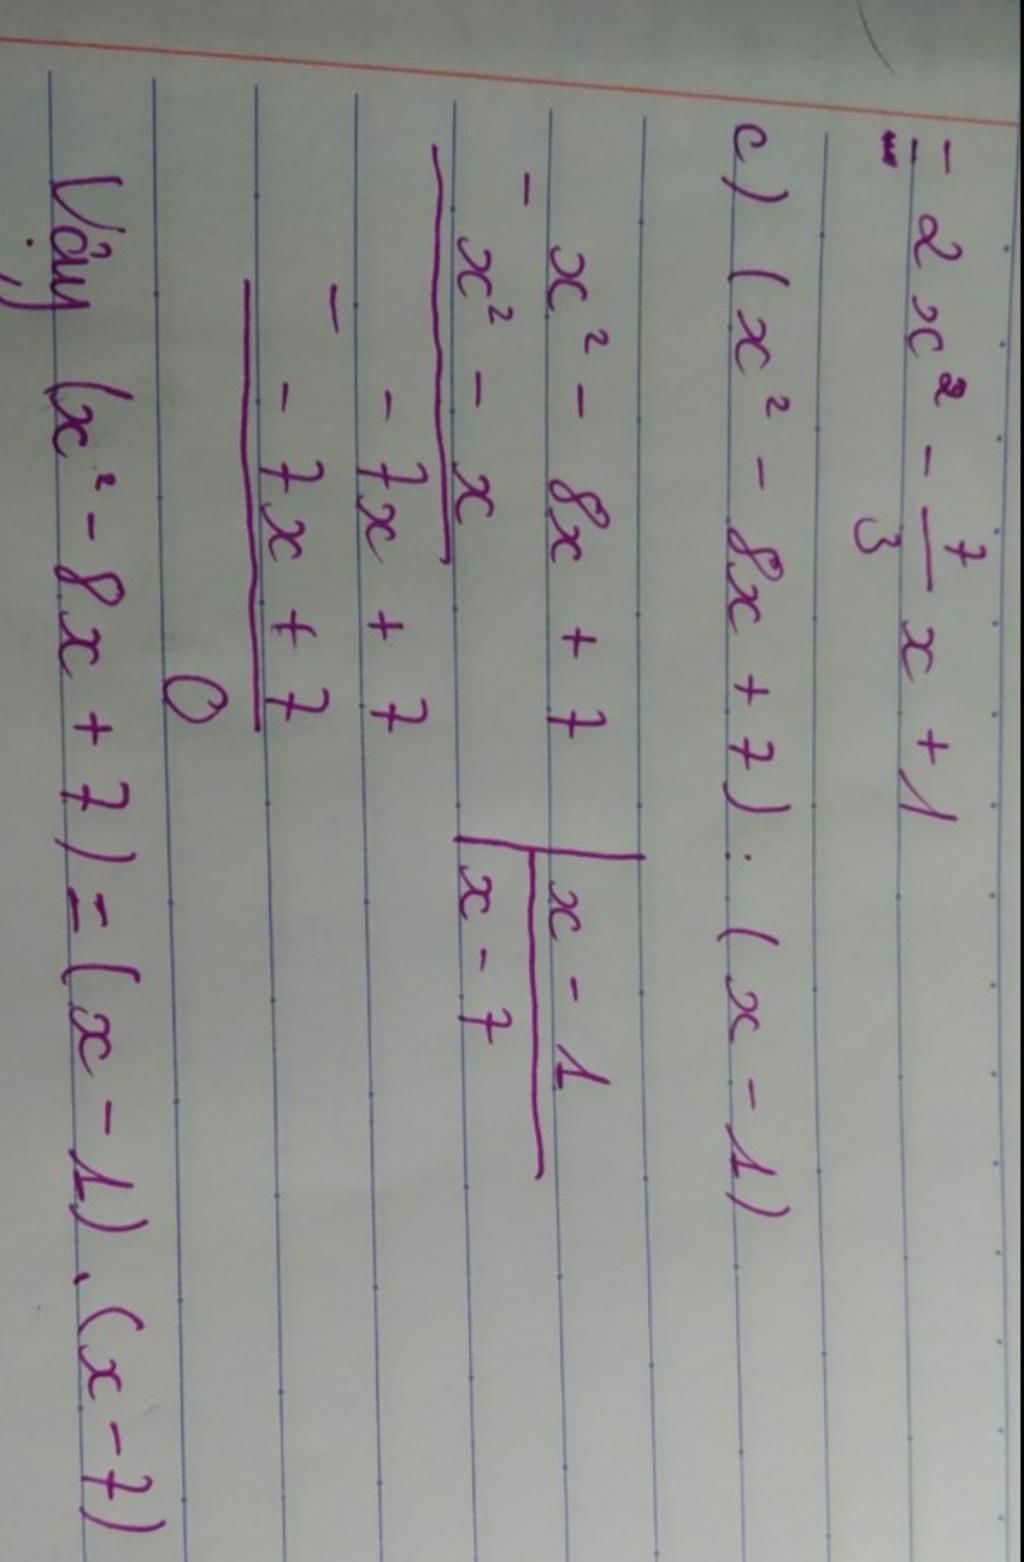 = 2x² - 7/3 x + 1
c) (x² - 8x + 7) : (x - 1)
x² - 8x + 7 | x - 1
- x² - x | x - 7
- 7x + 7
- - 7x + 7
0
Vậy (x² - 8x + 7) = (x - 1) . (x - 7)